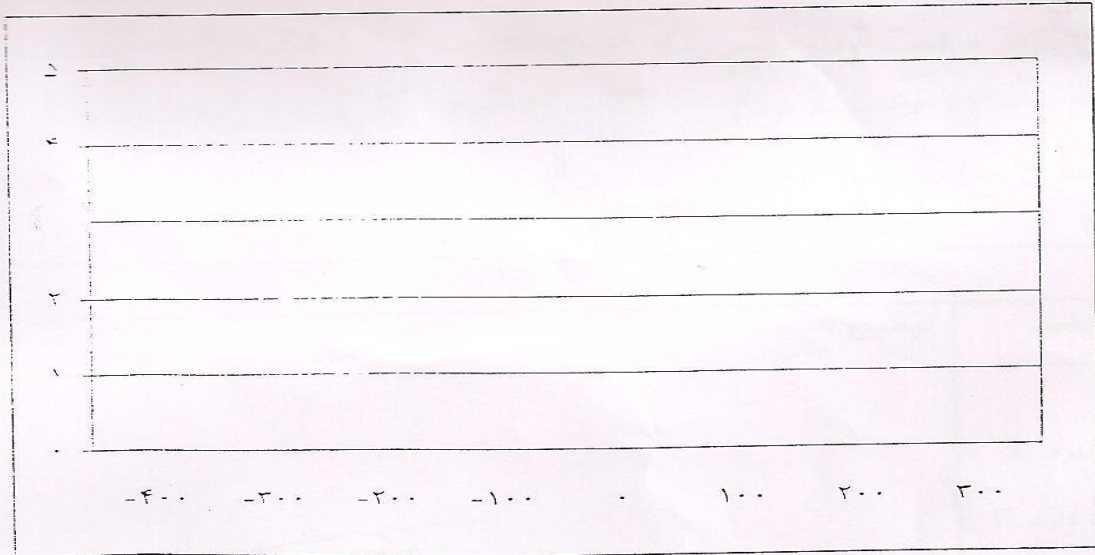 ۴
۲
۱
۰
-۴۰۰ -۳۰۰ -۲۰۰ -۱۰۰ ۰ ۱۰۰ ۲۰۰ ۳۰۰